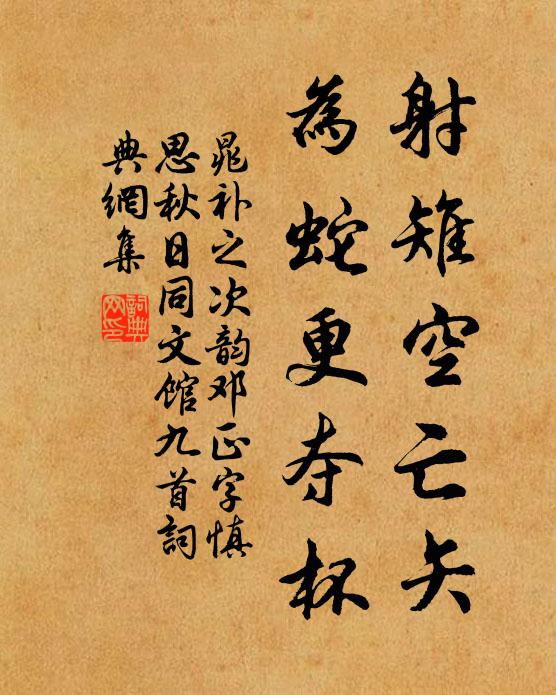 射雉空亡矢
為蛇更夺杯
晁补之次韵邓正字慎
思秋日同文館九首詞
典網集
詞典网印